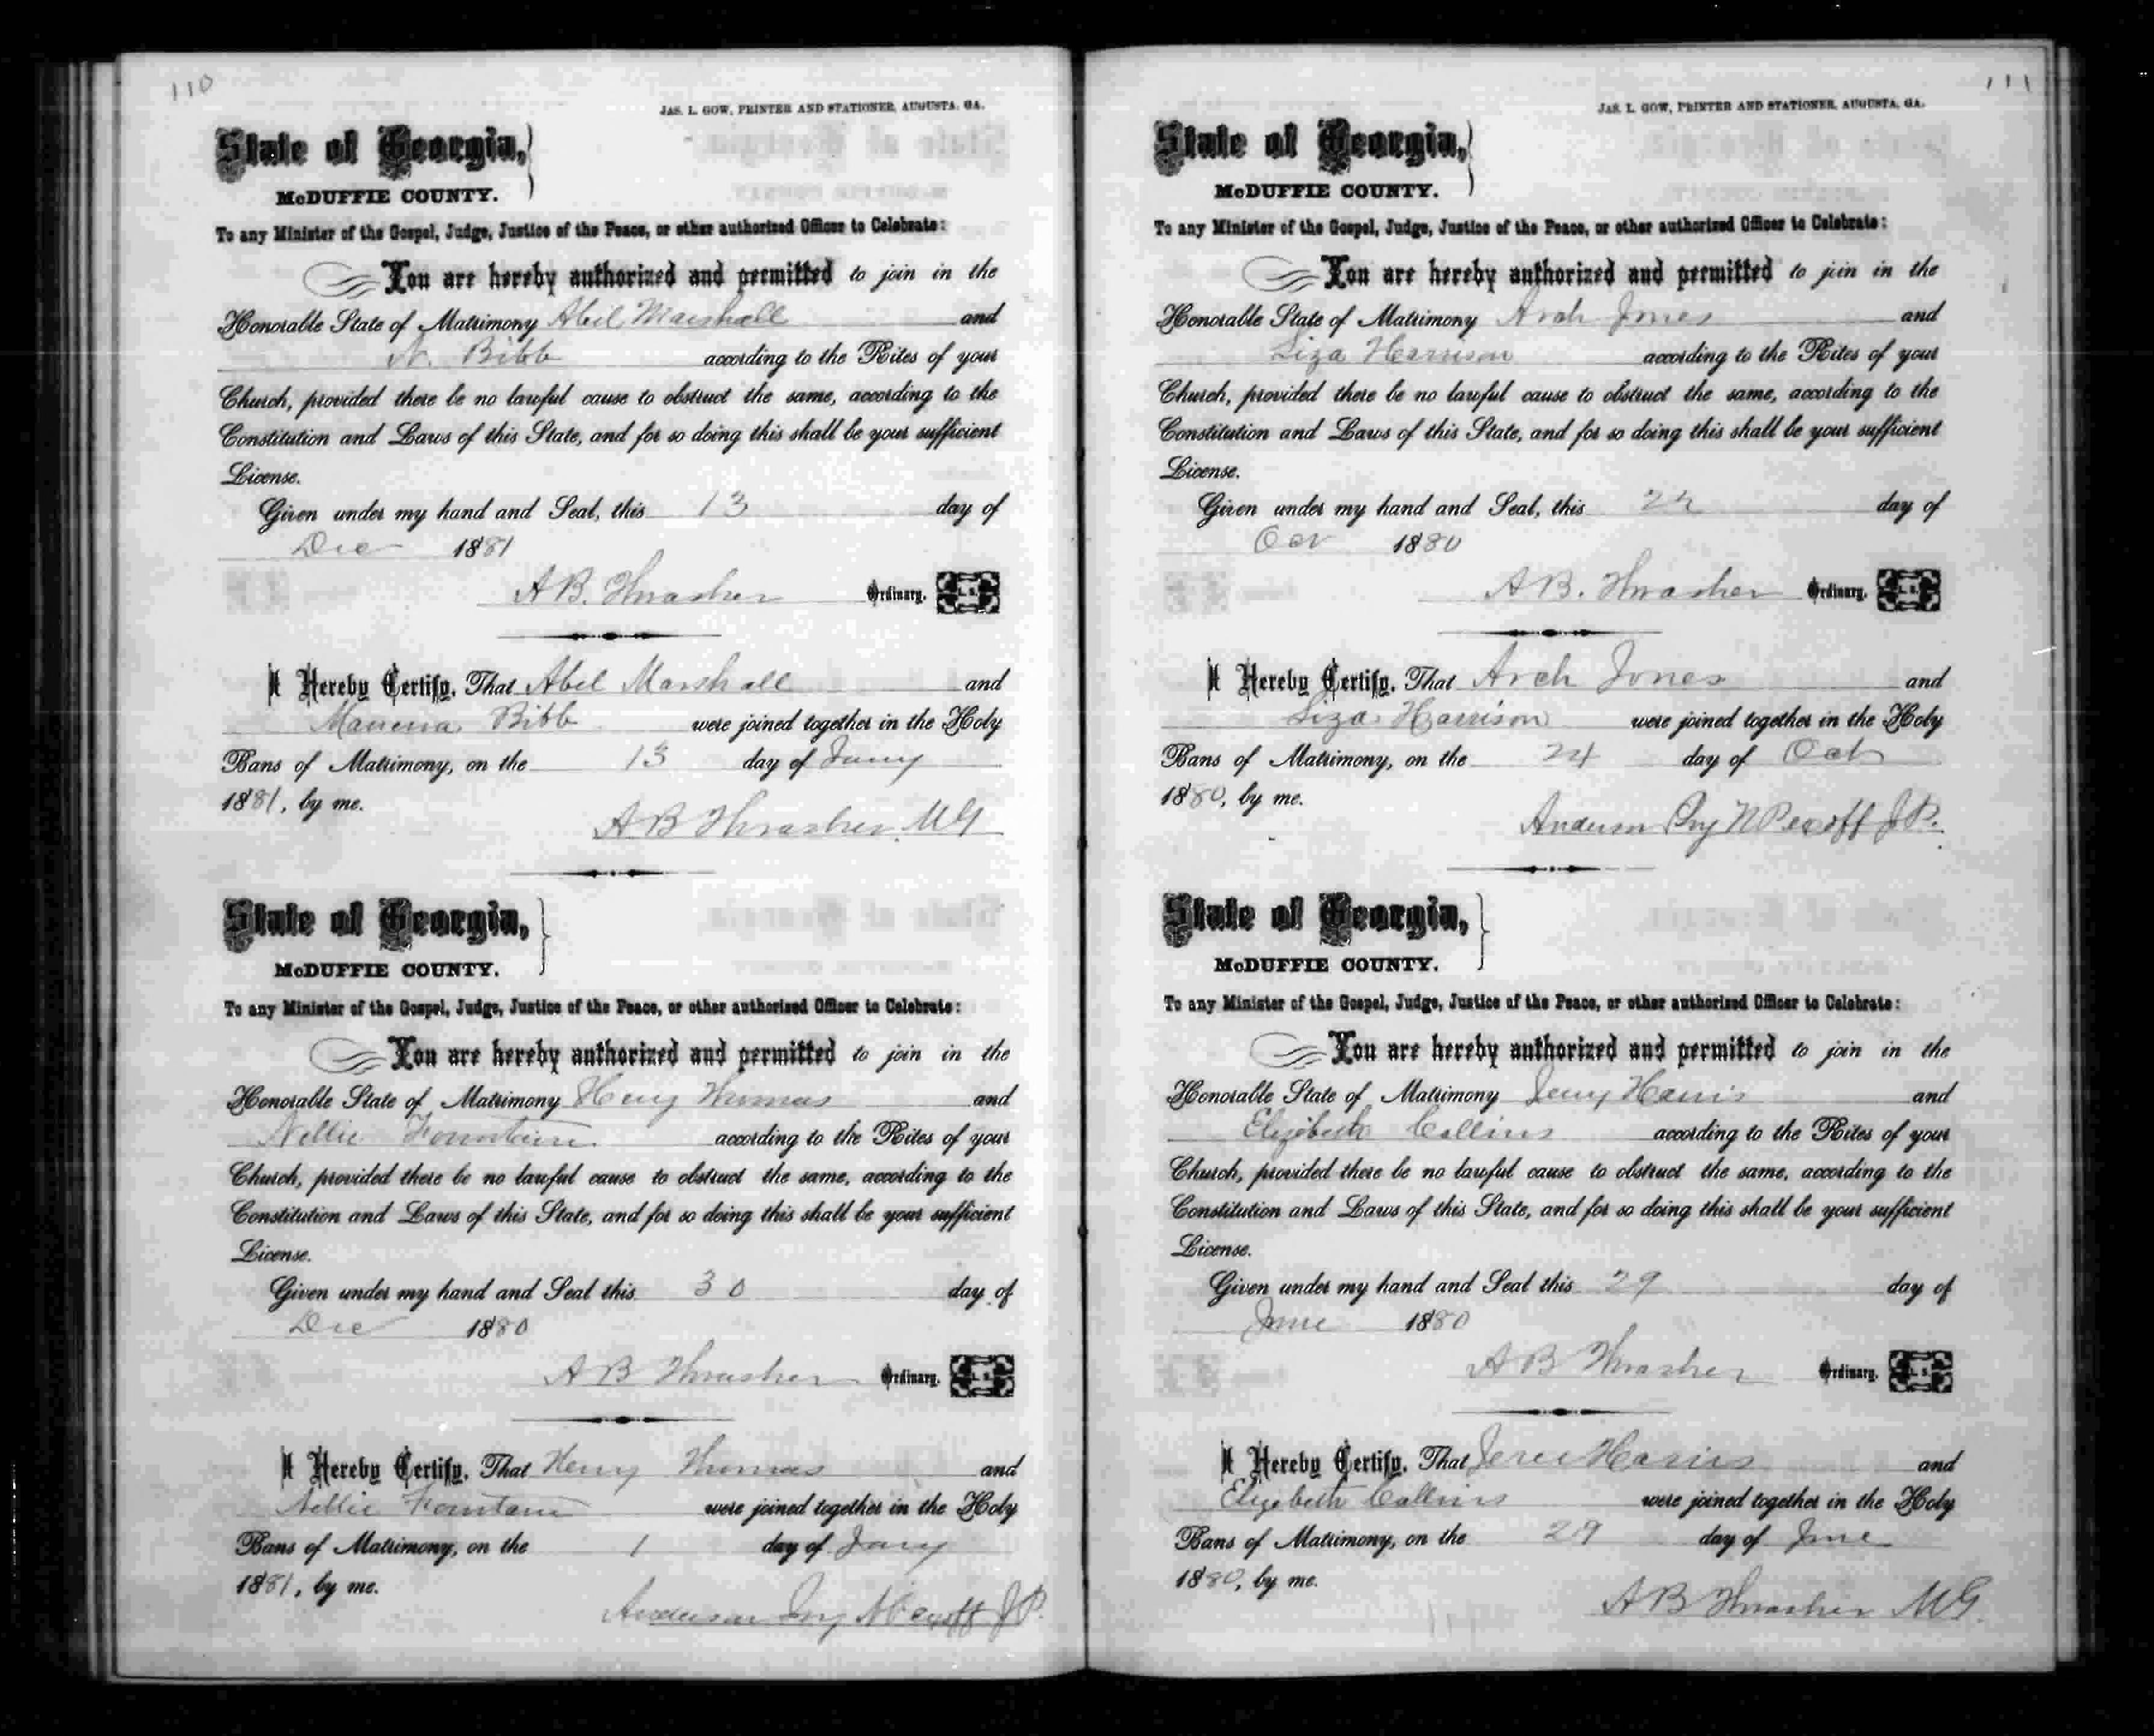 110
JAS. L. GOW, PRINTER AND STATIONER, AUGUSTA, GA.
State of Georgia,
McDUFFIE COUNTY.
To any Minister of the Gospel, Judge, Justice of the Peace, or other authorized Officer to Celebrate:
You are hereby authorized and permitted to join in the
Honorable State of Matrimony Abil Marshall and
N. Bibb according to the Rites of your
Church, provided there be no lawful cause to obstruct the same, according to the
Constitution and Laws of this State, and for so doing this shall be your sufficient
License.
Given under my hand and Seal, this 13 day of
Dec 1881
A B. Thrasher Ordinary. L. S.
I Hereby Certify, That Abel Marshall and
Bibb were joined together in the Holy
Bans of Matrimony, on the 13 day of Jany
1881, by me.
A B Thrasher. MG
State of Georgia,
McDUFFIE COUNTY.
To any Minister of the Gospel, Judge, Justice of the Peace, or other authorized Officer to Celebrate:
You are hereby authorized and permitted to join in the
Honorable State of Matrimony Henry Thomas and
Nellie Fountain according to the Rites of your
Church, provided there be no lawful cause to obstruct the same, according to the
Constitution and Laws of this State, and for so doing this shall be your sufficient
License.
Given under my hand and Seal this 30 day of
Dec 1880
A B Thrasher Ordinary. L. S.
I Hereby Certify, That Henry Thomas and
Nellie Fountain were joined together in the Holy
Bans of Matrimony, on the 1 day of Jany
1881, by me.
Anderson Ivy N P exoff J P.
111
JAS. L. GOW, PRINTER AND STATIONER, AUGUSTA, GA.
State of Georgia,
McDUFFIE COUNTY.
To any Minister of the Gospel, Judge, Justice of the Peace, or other authorized Officer to Celebrate:
You are hereby authorized and permitted to join in the
Honorable State of Matrimony Arch Jones and
Liza Harrison according to the Rites of your
Church, provided there be no lawful cause to obstruct the same, according to the
Constitution and Laws of this State, and for so doing this shall be your sufficient
License.
Given under my hand and Seal, this day of
Oct 1880
A B. Thrasher Ordinary. L. S.
I Hereby Certify, That Arch Jones and
Liza Harrison were joined together in the Holy
Bans of Matrimony, on the 24 day of Oct
1880, by me.
Anderson Ivy N P exoff J P.
State of Georgia,
McDUFFIE COUNTY.
To any Minister of the Gospel, Judge, Justice of the Peace, or other authorized Officer to Celebrate:
You are hereby authorized and permitted to join in the
Honorable State of Matrimony Jerry Harris and
Elizabeth Collins according to the Rites of your
Church, provided there be no lawful cause to obstruct the same, according to the
Constitution and Laws of this State, and for so doing this shall be your sufficient
License.
Given under my hand and Seal this 29 day of
June 1880
A B Thrasher Ordinary. L. S.
I Hereby Certify, That Harris and
Elizabeth Collins were joined together in the Holy
Bans of Matrimony, on the 29 day of June
1880, by me.
A B Thrasher MG.